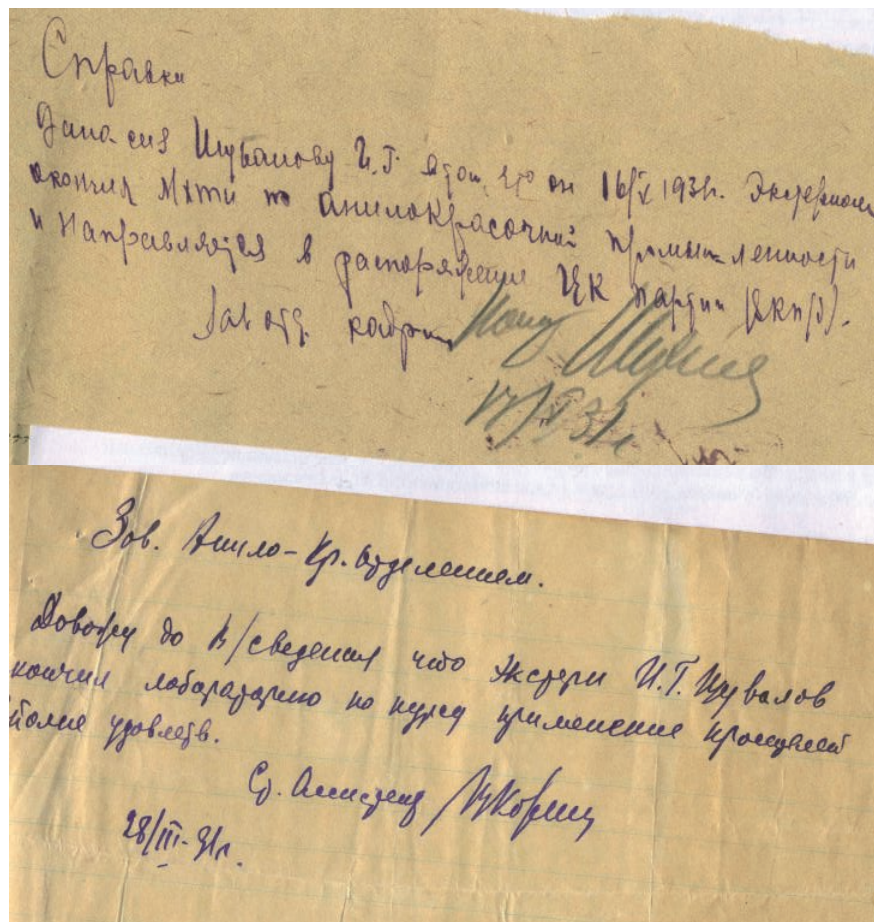 Справка
Дана сия Шувалову И.Г. в том, что он 16/V 1931г. Экстерном
окончил МХТИ по анилокрасочной промышленности
и направляется в распоряжение ЦК партии (ВКП(б).
Зав отд. кадрами
17/V 31г.
Зав. Анило-Кр. отделением.
Довожу до В/сведения что экстерн И.Г. Шувалов
кончил лабораторию по курсу применение
удовлетв.
Ст. Ассистент
28/III-31г.